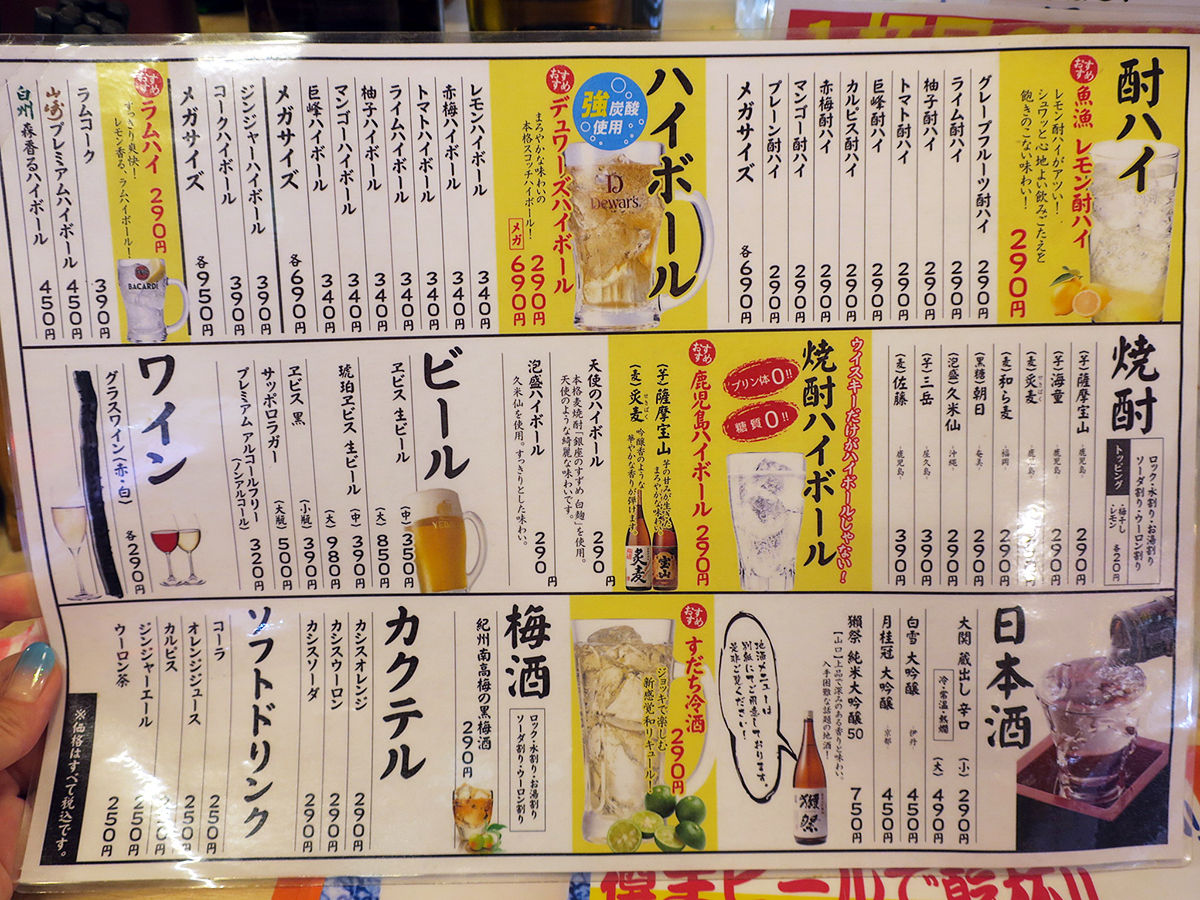 酎ハイ
おすすめ
魚漁 レモン酎ハイ
レモン酎ハイがアツい!
シュワッと心地よい飲みごたえを
飽きのこない味わい!
290円
グレープフルーツ酎ハイ 290円
ライム酎ハイ 290円
柚子酎ハイ 290円
トマト酎ハイ 290円
巨峰酎ハイ 290円
カルピス酎ハイ 290円
赤梅酎ハイ 290円
マンゴー酎ハイ 290円
プレーン酎ハイ 290円
メガサイズ 各690円
ハイボール
強炭酸使用
Dewar's
おすすめ
デュワーズハイボール
まろやかな味わいの
本格スコッチハイボール!
290円
メガ 690円
レモンハイボール 340円
赤梅ハイボール 340円
トマトハイボール 340円
ライムハイボール 340円
柚子ハイボール 340円
マンゴーハイボール 340円
巨峰ハイボール 340円
メガサイズ 各690円
ジンジャーハイボール 390円
コークハイボール 390円
メガサイズ 各950円
おすすめ
ラムハイ 290円
すっきり爽快!
レモン香る、ラムハイボール!
BACARDI
ラムコーク 390円
山崎 プレミアムハイボール 450円
白州 森香るハイボール 450円
焼酎
ロック・水割り・お湯割り
ソーダ割り・ウーロン割り
トッピング
・梅干し
・レモン
各20円
(芋)薩摩宝山 -鹿児島- 290円
(芋)海童 -鹿児島- 290円
(麦)炙麦 せきばく -鹿児島- 290円
(麦)和ら麦 -福岡- 290円
(黒糖)朝日 -奄美- 290円
(泡盛)久米仙 -沖縄- 290円
(芋)三岳 -屋久島- 390円
(麦)佐藤 -鹿児島- 390円
ウイスキーだけがハイボールじゃない!
焼酎ハイボール
プリン体0!!
糖質0!!
おすすめ
鹿児島ハイボール 290円
(芋)薩摩宝山 芋の甘みが生きた
まろやかな味わい。
(麦)炙麦 せきばく 吟醸香のような
華やかな香りが弾けます。
炙麦
宝山
天使のハイボール 290円
本格麦焼酎「銀座のすずめ 白麹」を使用。
天使のような綺麗な味わいです。
泡盛ハイボール 290円
久米仙を使用。すっきりとした味わい。
ビール
ヱビス 生ビール (中) 350円
(大) 850円
琥珀ヱビス 生ビール (中) 390円
(大) 980円
ヱビス 黒 (小瓶) 390円
サッポロラガー (大瓶) 500円
プレミアム アルコールフリー
(ノンアルコール) 320円
ワイン
グラスワイン(赤・白) 各290円
日本酒
大関 蔵出し 辛口 (小) 290円
冷・常温・熱燗 (大) 490円
白雪 大吟醸 -伊丹- 450円
月桂冠 大吟醸 -京都- 450円
獺祭 純米大吟醸50 750円
【山口】上品で深みのある香りと味わい。
入手困難な話題の地酒!
地酒メニューは
別紙にてご用意しております。
是非ご覧ください!
獺祭
おすすめ
すだち冷酒 290円
ジョッキで楽しむ
新感覚和リキュール!
梅酒
ロック・水割り・お湯割り
ソーダ割り・ウーロン割り
紀州南高梅の黒梅酒 290円
カクテル
カシスオレンジ 290円
カシスウーロン 290円
カシスソーダ 290円
ソフトドリンク
コーラ 250円
オレンジジュース 250円
カルピス 250円
ジンジャーエール 250円
ウーロン茶 250円
※価格はすべて税込です。
生ビールで乾杯!!